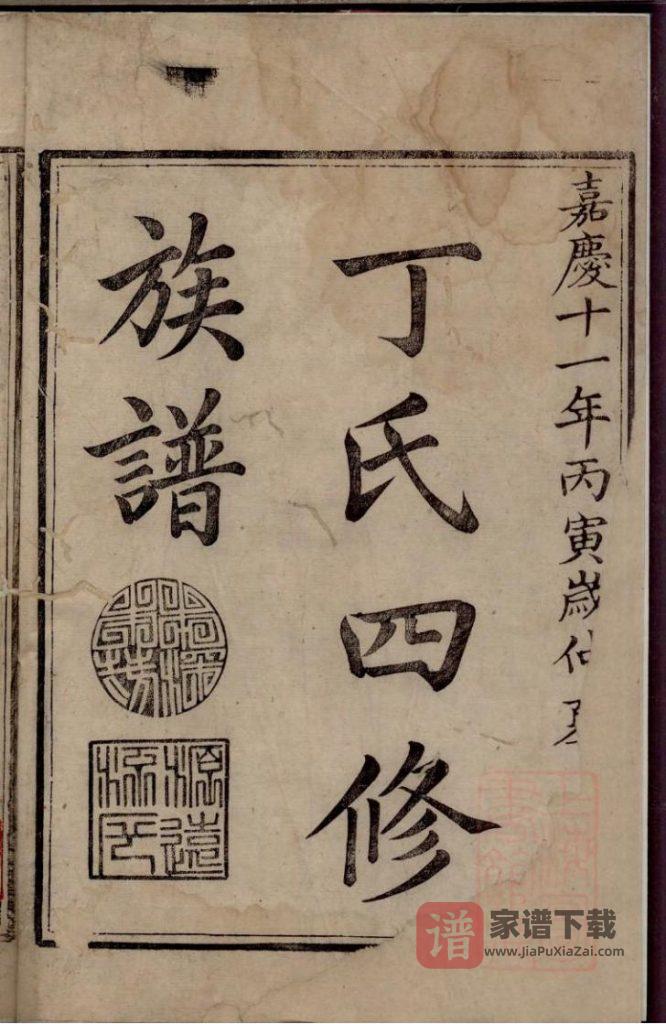 嘉慶十一年丙寅歲仲
丁氏四修
族譜
源遠
流長
谱
家谱下载
www.JiaPuXiaZai.com